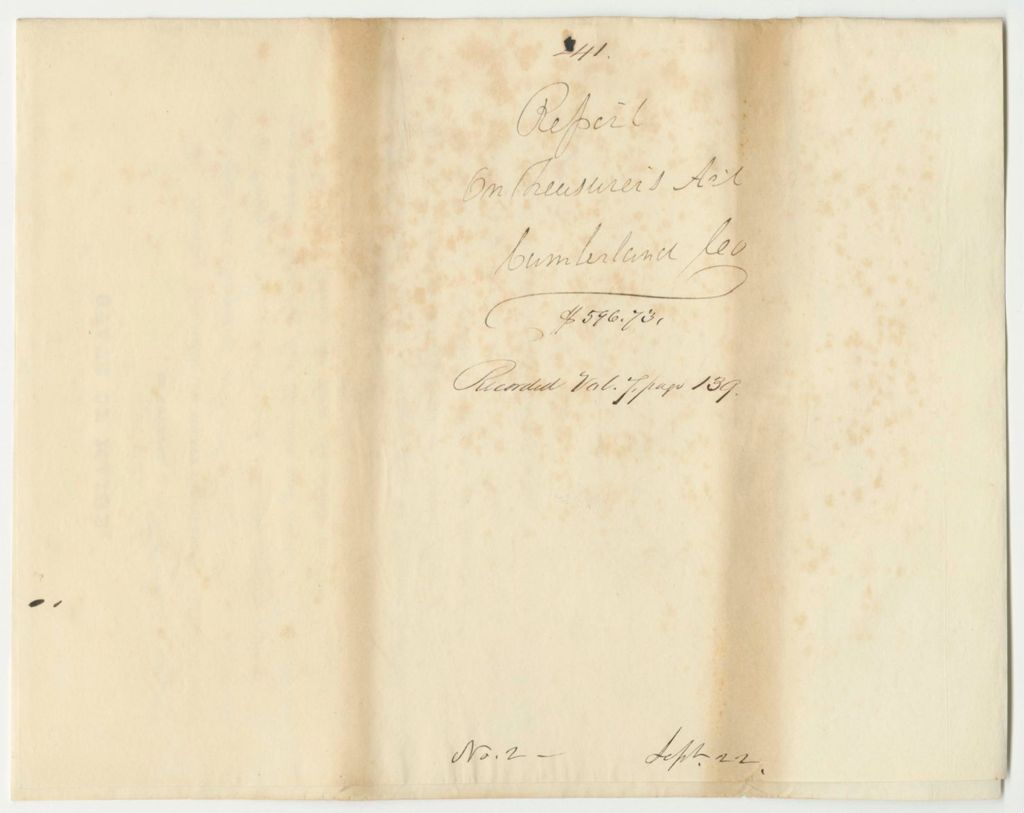 241.
Report
On Treasurer's Act
Cumberland Co
$596.73.
Recorded Vol. 7, page 139.
No. 2 – Sept. 22.